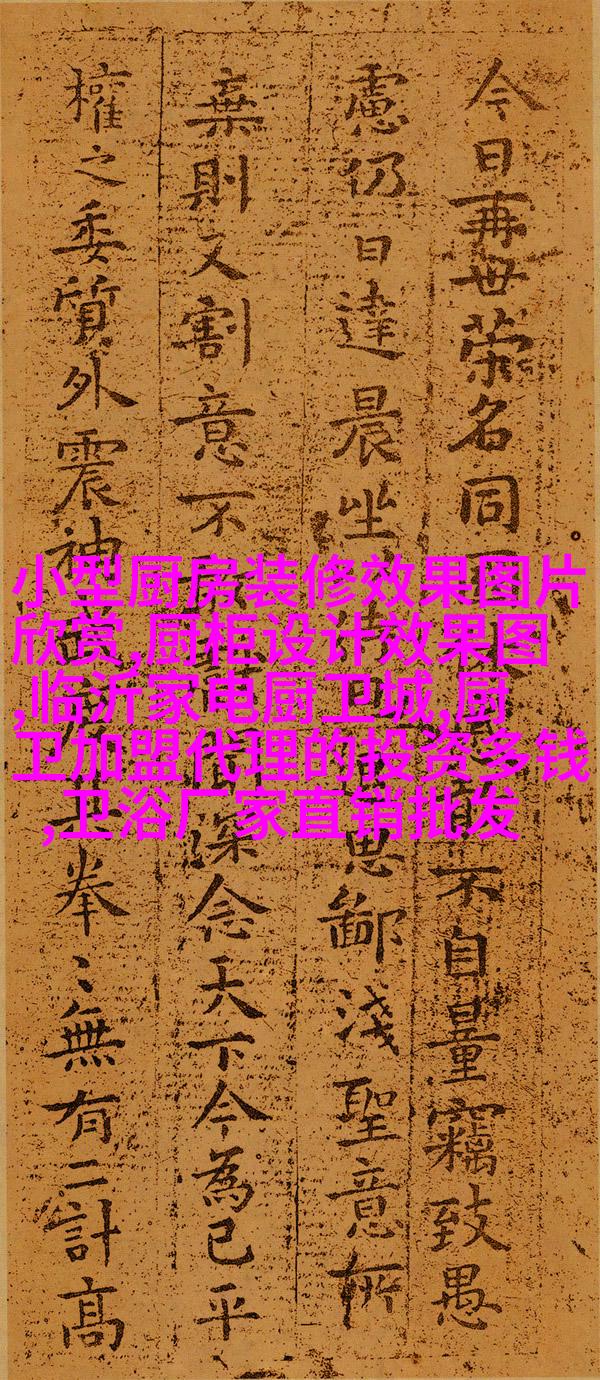 今日再世荣名同
不自量竊致愚
慮仍日達晨坐
思鄙淺聖意所
棄則又割意不
深念天下今為已平
權之委質外震神
拳〻無有二計高
小型厨房装修效果图片
欣赏,厨柜设计效果图
,临沂家电厨卫城,厨
卫加盟代理的投资多钱
,卫浴厂家直销批发